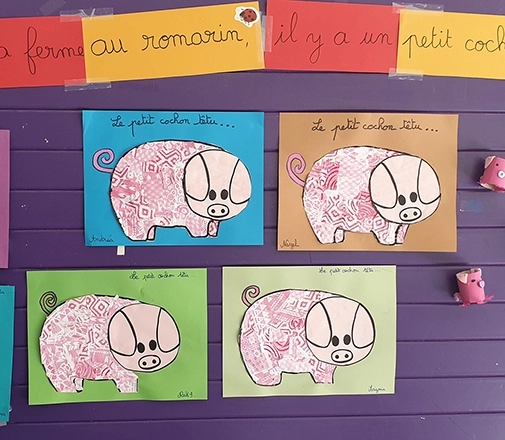 a ferme au romarin, il y a un petit coch
Le petit cochon têtu...
Le petit cochon têtu...
Andréa
Nizel
Le petit cochon têtu
Le petit cochon têtu